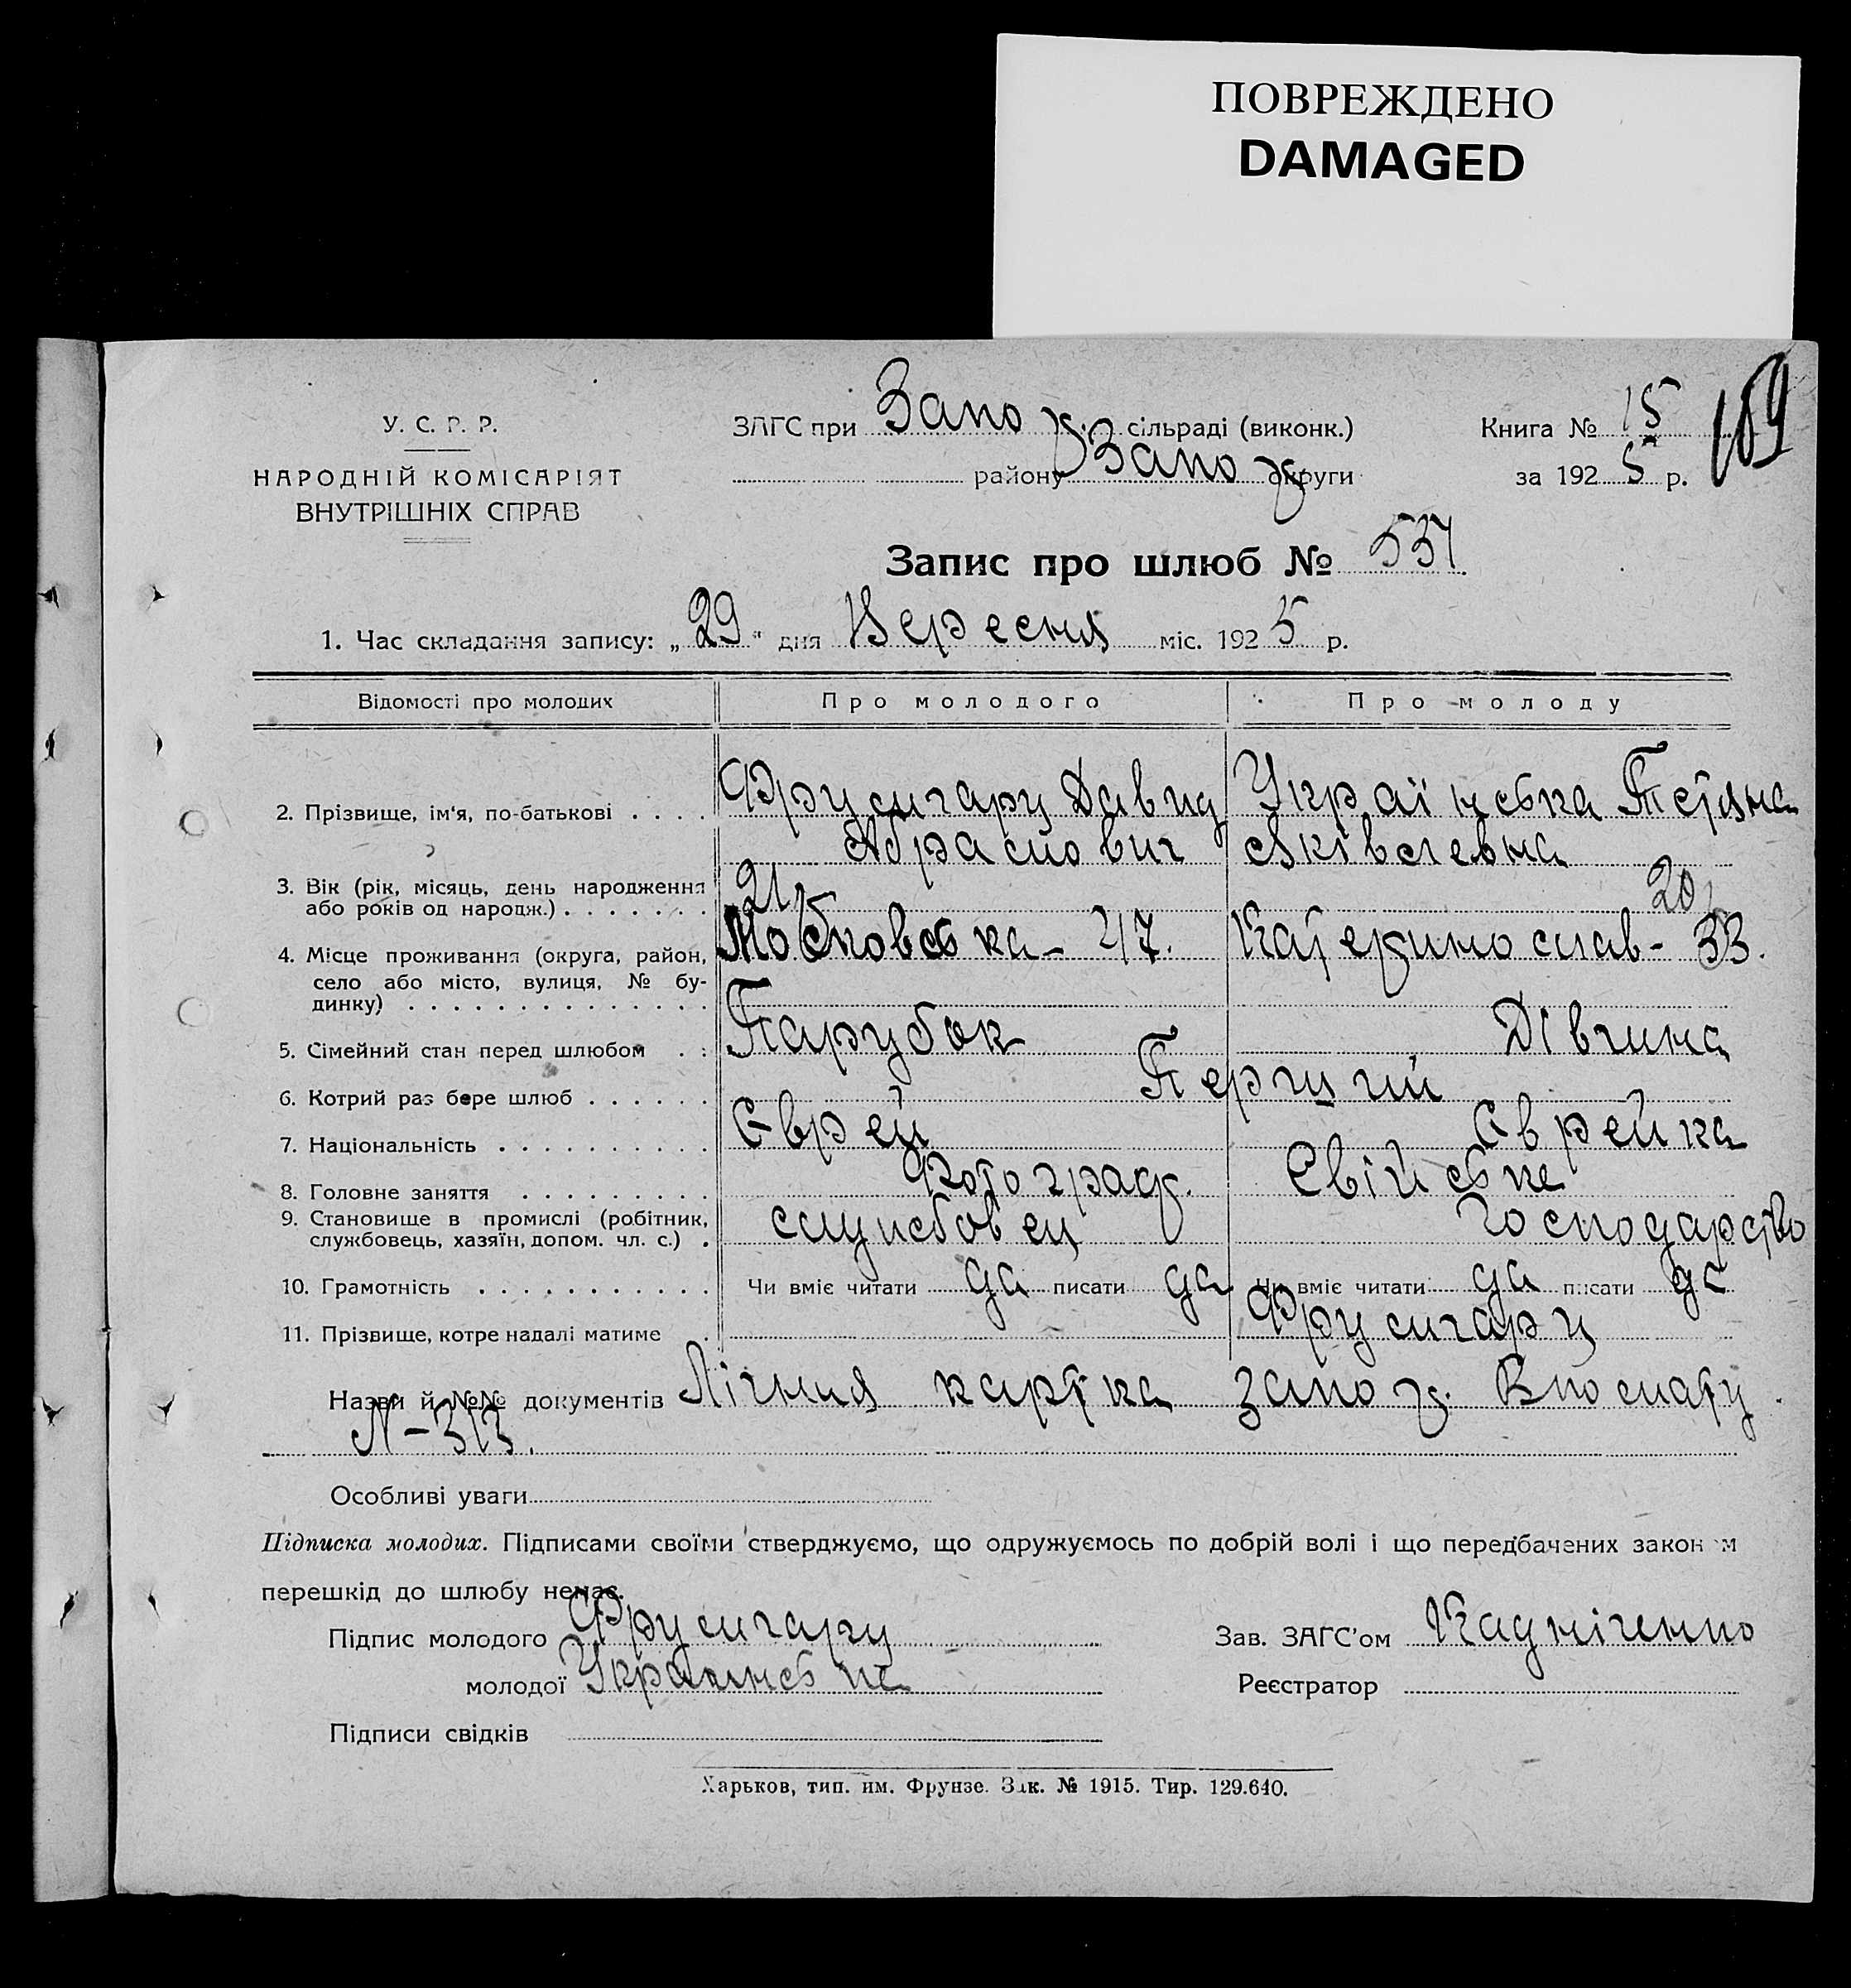 ПОВРЕЖДЕНО
DAMAGED
У. С. Р. Р.
НАРОДНІЙ КОМІСАРІЯТ
ВНУТРІШНІХ СПРАВ
ЗАГС при Запо сільраді (виконк.)
району Запо округи
Книга № 15
за 1925 р.
159
Запис про шлюб № 537
1. Час складання запису: „29" дня Вересня міс. 1925 р.
Відомості про молодих Про молодого Про молоду
2. Прізвище, ім'я, по-батькові . . . . Давид Українська Тетяна
Абрамович Яківлевна
3. Вік (рік, місяць, день народження
або років од народж.) . . . . . . . 21 20
4. Місце проживання (округа, район, Московська - 47. Катеринослав - 33.
село або місто, вулиця, № бу-
динку) . . . . . . . . . . . . . .
5. Сімейний стан перед шлюбом . : Парубок Дівчина
6. Котрий раз бере шлюб . . . . . . Перший
7. Національність . . . . . . . . . . Єврей Єврейка
8. Головне заняття . . . . . . . . . Фотограф. Свійське
9. Становище в промислі (робітник,
службовець, хазяїн, допом. чл. с.) . службовец господарство
10. Грамотність . . . . . . . . . . . Чи вміє читати да писати да Чи вміє читати да писати да
11. Прізвище, котре надалі матиме .
Назви й №№ документів Лічния картка запо
N - 313.
Особливі уваги
Підписка молодих. Підписами своїми стверджуємо, що одружуємось по добрій волі і що передбачених законом
перешкід до шлюбу немає.
Підпис молодого
Зав. ЗАГС'ом
молодої
Реєстратор
Підписи свідків
Харьков, тип. им. Фрунзе. Зак. № 1915. Тир. 129.640.